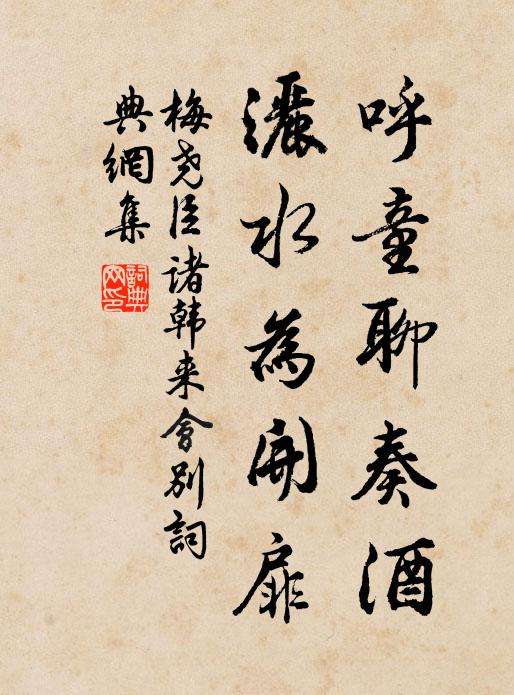 呼童聊奏酒
灑水為開扉
梅堯臣諸韩来會别詞
典網集
詞典网印